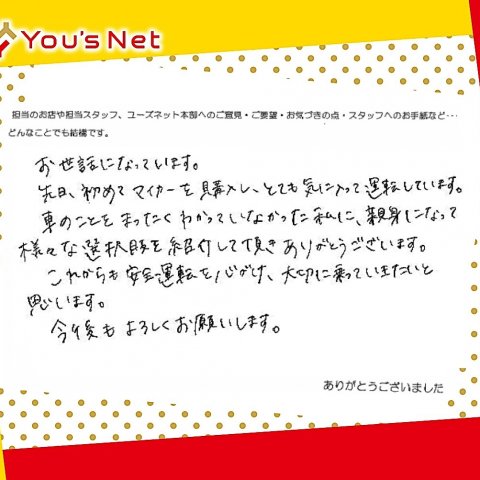 You's Net
担当のお店や担当スタッフ、ユーズネット本部へのご意見・ご要望・お気づきの点・スタッフへのお手紙など…
どんなことでも結構です。
お世話になっています。
先日、初めてマイカーを購入し、とても気に入って運転しています。
車のことをまったくわかっていなかった私に、親身になって
様々な選択肢を紹介して頂きありがとうございます。
これからも安全運転を心がけ、大切に乗っていきたいと
思います。
今後もよろしくお願いします。
ありがとうございました